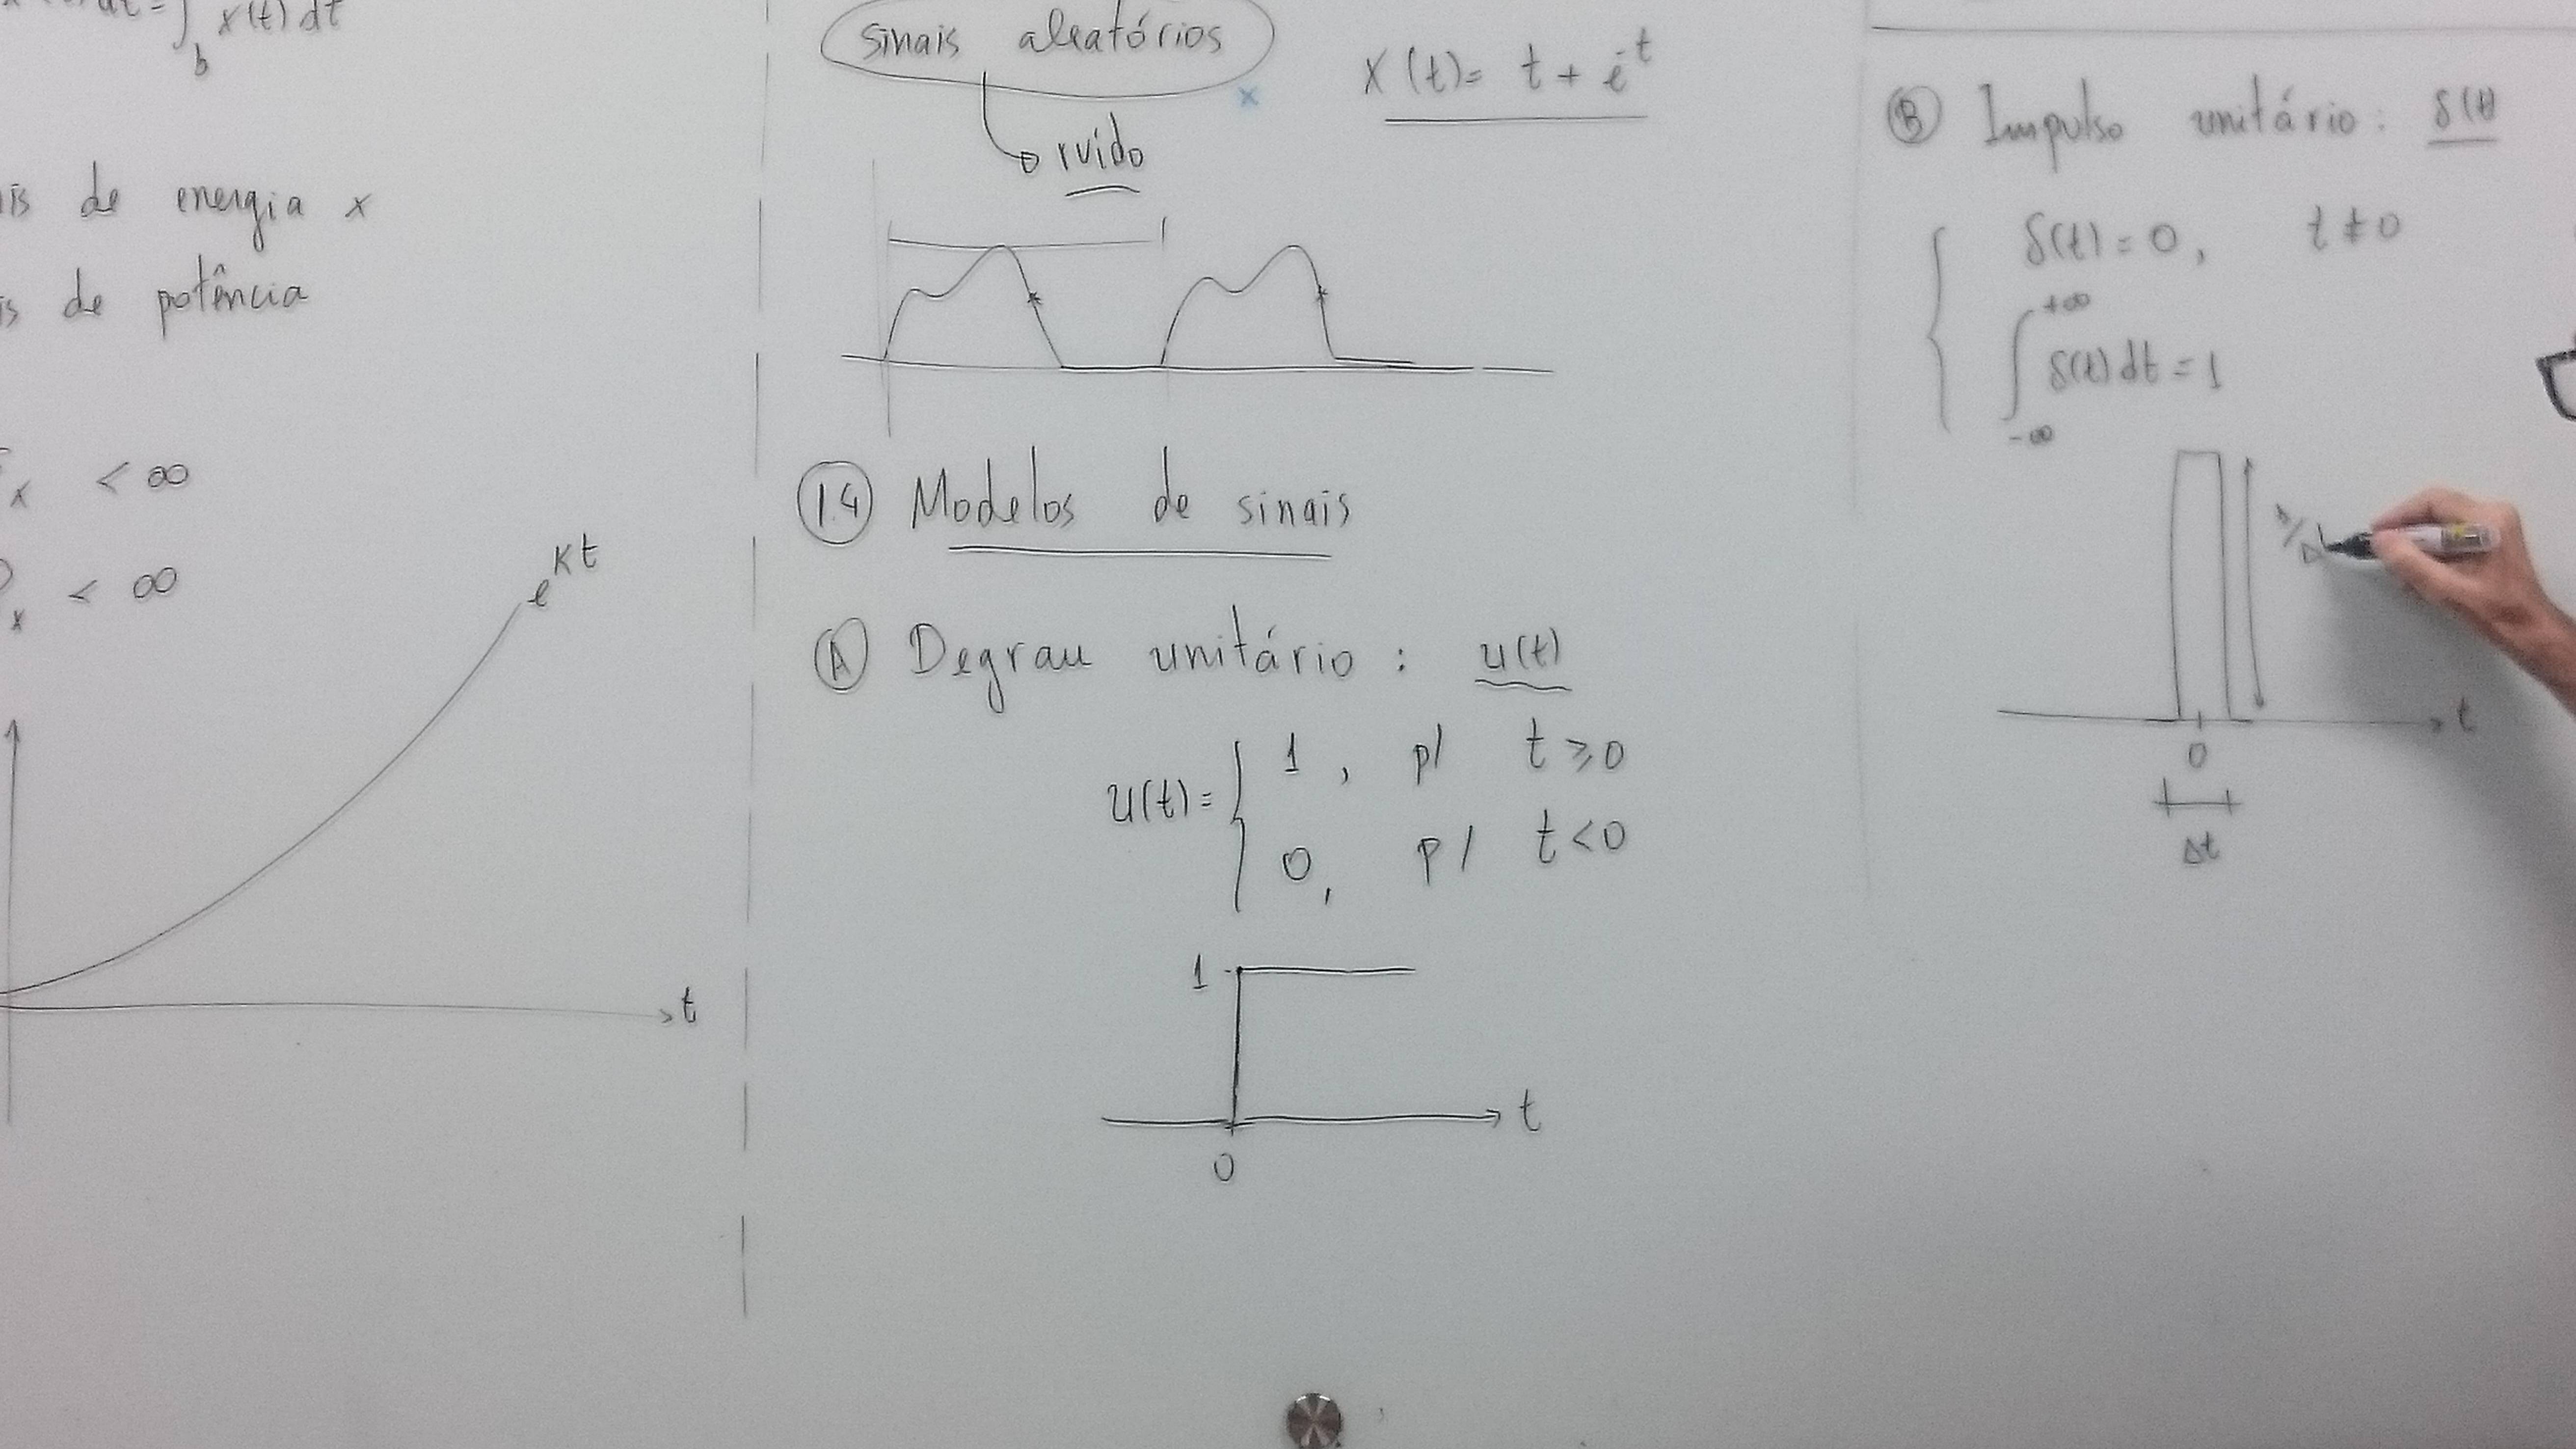 x(t) dt
b
de energia x
de potência
x < ∞
x < ∞
e^Kt
t
sinais aleatórios
ruído
x
X(t) = t + e^-t
1.4 Modelos de sinais
A Degrau unitário : u(t)
u(t) = { 1 , p/ t ≥ 0
0 , p/ t < 0
1
t
0
B Impulso unitário : δ(t)
{ δ(t) = 0 , t ≠ 0
∫ +∞ -∞ δ(t) dt = 1
t
0
Δt